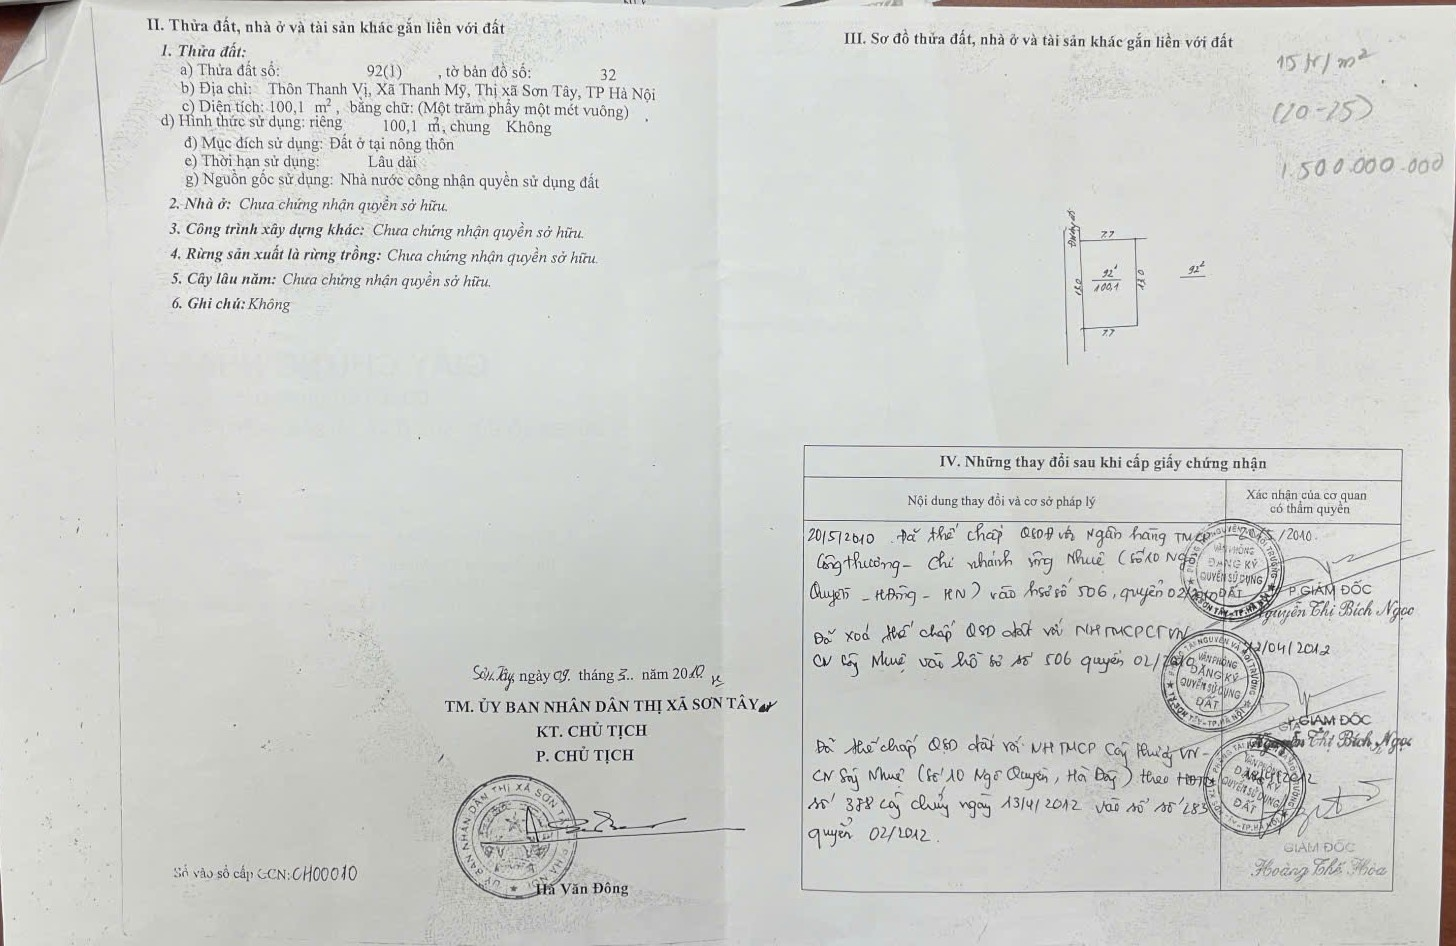 II. Thửa đất, nhà ở và tài sản khác gắn liền với đất
1. Thửa đất:
a) Thửa đất số: 92(1) , tờ bản đồ số: 32
b) Địa chỉ: Thôn Thanh Vị, Xã Thanh Mỹ, Thị xã Sơn Tây, TP Hà Nội
c) Diện tích: 100,1 m², bằng chữ: (Một trăm phẩy một mét vuông)
d) Hình thức sử dụng: riêng 100,1 m², chung Không
đ) Mục đích sử dụng: Đất ở tại nông thôn
e) Thời hạn sử dụng: Lâu dài
g) Nguồn gốc sử dụng: Nhà nước công nhận quyền sử dụng đất
2. Nhà ở: Chưa chứng nhận quyền sở hữu.
3. Công trình xây dựng khác: Chưa chứng nhận quyền sở hữu.
4. Rừng sản xuất là rừng trồng: Chưa chứng nhận quyền sở hữu.
5. Cây lâu năm: Chưa chứng nhận quyền sở hữu.
6. Ghi chú: Không
Sơn Tây, ngày 09. tháng 3.. năm 2010
TM. ỦY BAN NHÂN DÂN THỊ XÃ SƠN TÂY
KT. CHỦ TỊCH
P. CHỦ TỊCH
Hà Văn Đông
Số vào sổ cấp GCN: CH00010
III. Sơ đồ thửa đất, nhà ở và tài sản khác gắn liền với đất
15 tr/m²
(20-25)
1.500.000.000
7.7
13.0
92¹
100,1
13.0
92²
7.7
IV. Những thay đổi sau khi cấp giấy chứng nhận
Nội dung thay đổi và cơ sở pháp lý
Xác nhận của cơ quan
có thẩm quyền
20/5/2010 Đã thế chấp QSDĐ với Ngân hàng TMCP
Công thương - chi nhánh sông Nhuệ (số 10 Ngô
Quyền - HĐông - HN) vào hsơ số 506, quyển 02/2010
/2010.
P.GIÁM ĐỐC
Nguyễn Thị Bích Ngọc
Đã xoá thế chấp QSD đất với NHTMCPCTVN
CN Sông Nhuệ vào hồ sơ số 506 quyển 02/2010
12/04/2012
P.GIÁM ĐỐC
Nguyễn Thị Bích Ngọc
Đã thế chấp QSD đất với NHTMCP Công thương VN-
CN Sông Nhuệ (số 10 Ngô Quyền, Hà Đông) theo HĐTC
số 388 công chứng ngày 13/4/2012 vào sổ số 283
quyển 02/2012.
GIÁM ĐỐC
Hoàng Thế Hòa
VĂN PHÒNG
ĐĂNG KÝ
QUYỀN SỬ DỤNG
ĐẤT
VĂN PHÒNG
ĐĂNG KÝ
QUYỀN SỬ DỤNG
ĐẤT
VĂN PHÒNG
ĐĂNG KÝ
QUYỀN SỬ DỤNG
ĐẤT